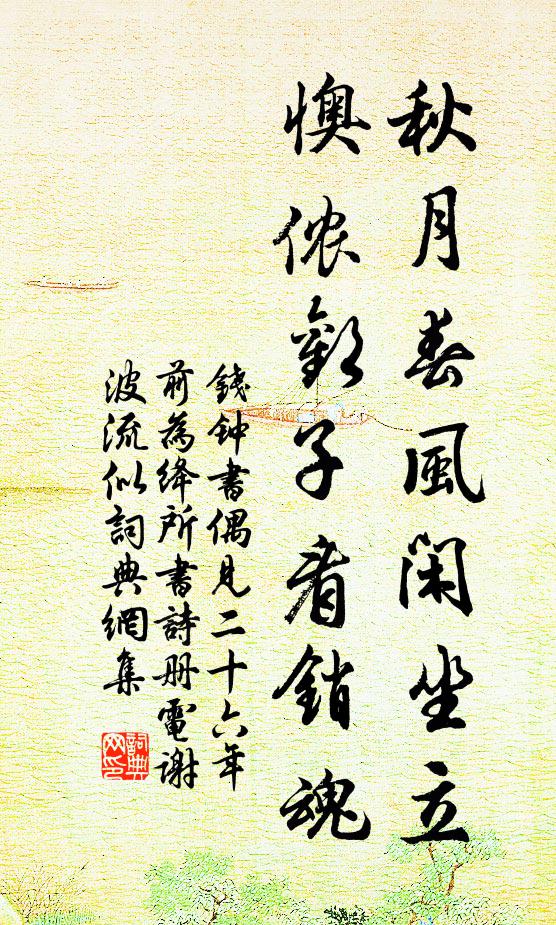 秋月春風闲坐立
懊侬歡子看銷魂
錢钟書偶見二十六年
前為绛所書詩册電谢
波流似詞典網集
詞典网印